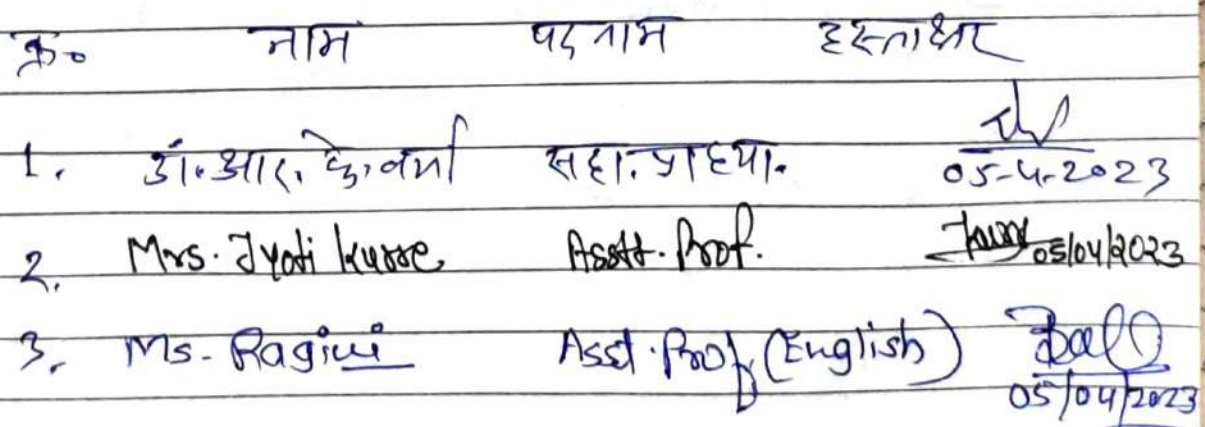 क्र० नाम पदनाम हस्ताक्षर
1. डॉ. आर. के. वर्मा सहा. प्राध्या.
05-4-2023
2. Mrs. Jyoti Kurre Asstt. Prof. 05/04/2023
3. Ms. Ragini Asst. Prof. (English)
05/04/2023